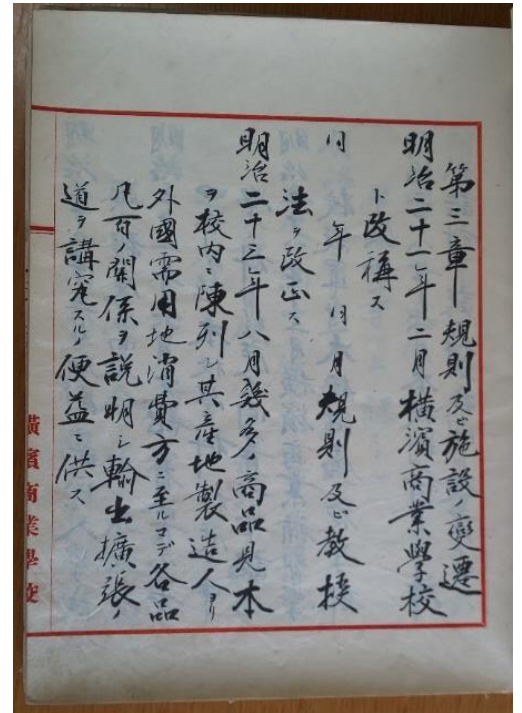 第三章 規則及ヒ施設ノ變遷
明治二十一年二月橫濱商業學校
ト改稱ス
同年同月規則及ヒ教授
法ヲ改正ス
明治二十三年八月幾多ノ商品見本
ヲ校内ニ陳列シ其産地製造人ヨリ
外國需用地消費方ニ至ルマデ各品
凡百ノ關係ヲ説明シ輸出擴張ノ
道ヲ講究スルノ便益ニ供ス
橫濱商業學校